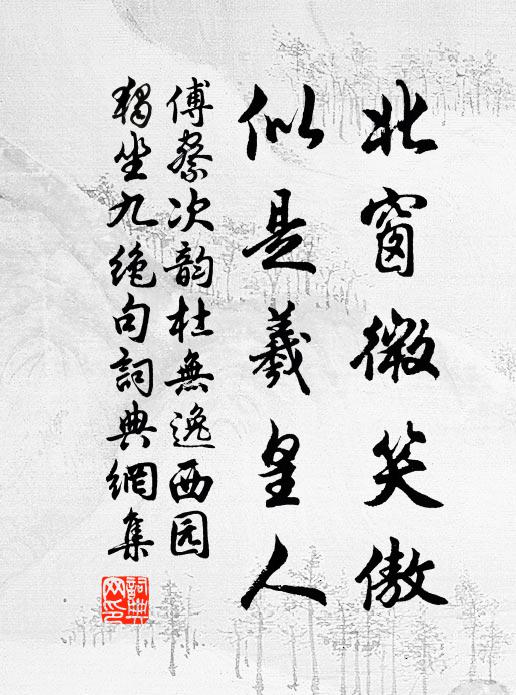 北窗微笑傲
似是羲皇人
傅察次韵杜無逸西园
獨坐九絶句詞典網集
詞典網印